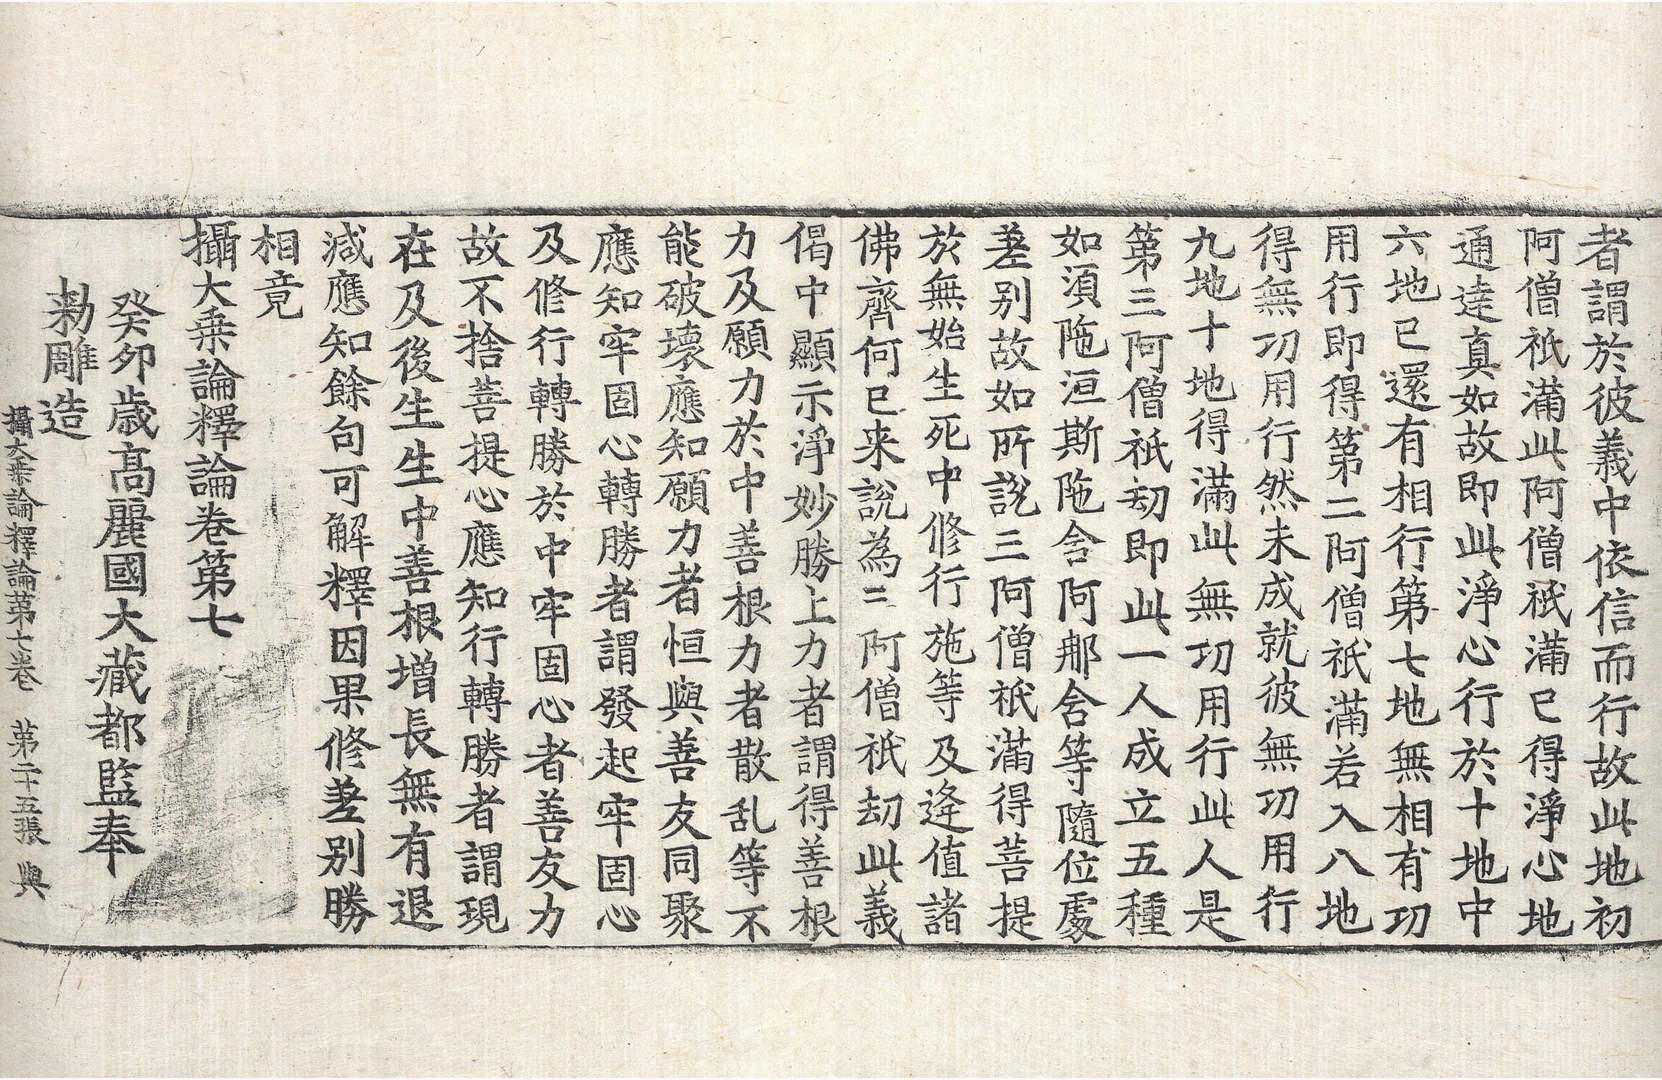 者謂於彼義中依信而行故此地初
阿僧祇滿此阿僧祇滿已得淨心地
通達真如故即此淨心行於十地中
六地已還有相行第七地無相有功
用行即得第二阿僧祇滿若入八地
得無功用行然未成就彼無功用行
九地十地得滿此無功用行此人是
第三阿僧祇劫即此一人成立五種
如須陁洹斯陁含阿那含等隨位處
差別故如所說三阿僧祇滿得菩提
於無始生死中修行施等及逄值諸
佛齊何已来說為三阿僧祇劫此義
偈中顯示淨妙勝上力者謂得善根
力及願力於中善根力者散乱等不
能破壞應知願力者恒與善友同聚
應知牢固心轉勝者謂發起牢固心
及修行轉勝於中牢固心者善友力
故不捨菩提心應知行轉勝者謂現
在及後生生中善根增長無有退
減應知餘句可解釋因果修差別勝
相竟
攝大乗論釋論卷第七
癸卯歲高麗國大藏都監奉
勑雕造
攝大乗論釋論第七卷 第二十五張 與